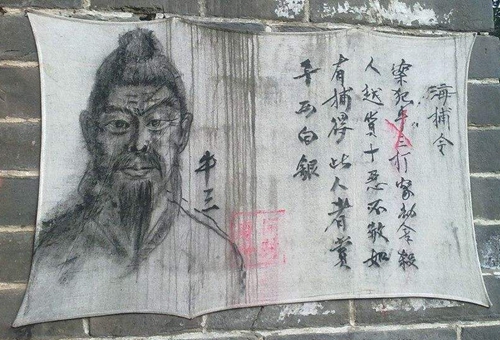 海捕令
案犯牛三打家劫舍殺
人越貨十恶不赦如
有捕得此人者賞
千两白銀
牛三